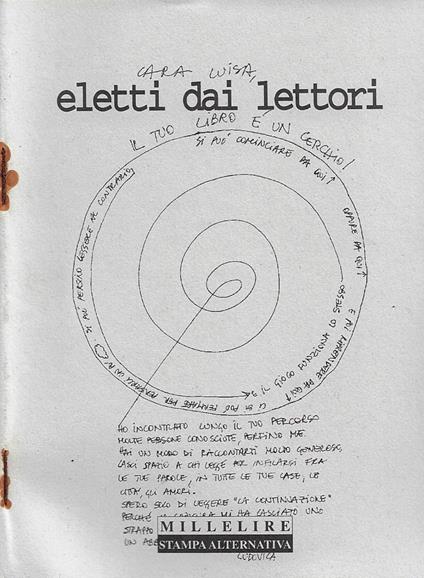 CARA LUISA,
eletti dai lettori
IL TUO LIBRO È UN CERCHIO!
SI PUÒ COMINCIARE DA QUI ↑
OPPURE DA QUI ↑
E POI RIPRENDERE DA QUI ↑
IL GIOCO FUNZIONA LO STESSO
CI SI PUÒ FERMARE PER
SI PUÒ PERSINO LEGGERE AL CONTRARIO
HO INCONTRATO LUNGO IL TUO PERCORSO
MOLTE PERSONE CONOSCIUTE, PERFINO ME.
HAI UN MODO DI RACCONTARTI MOLTO GENEROSO,
LASCI SPAZIO A CHI LEGGE PER INFILARSI FRA
LE TUE PAROLE, IN TUTTE LE TUE CASE, LE
CITTÀ, GLI AMORI.
SPERO SOLO DI LEGGERE "LA CONTINUAZIONE"
PERCHÉ MI HA LASCIATO UNO
STRAPPO
UN
LUDOVICA
MILLELIRE
STAMPA ALTERNATIVA